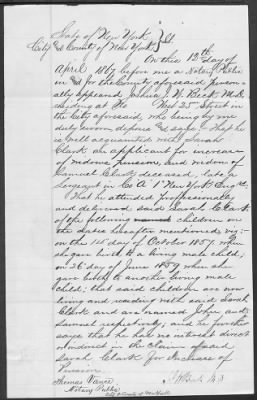 State of New York } SS
City & County of New York }
On this 12th day of
April 1867 before me a Notary Public
in & for the County aforesaid person
ally appeared J. W. Beck M.D.
residing at No West 25 Street in
the City aforesaid, who being by me
duly sworn deposes & says: That he
is well acquainted with Sarah
Clark an applicant for increase
of widows pension, and widow of
Samuel Clark deceased, late a
Sergeant in Co A 1st New York
That he attended Professionally
and delivered said Sarah E. Clark
of the following named children on
the dates hereafter mentioned viz:
on the 1st day of October 1857 when
she gave birth to a living male child;
on 26 day of June 1859 when she
gave birth to another living male
child; that said children are now
living and residing with said Sarah
Clark and are named John and
Samuel respectively; and he further
says that he has no interest direct
or indirect in the claim of said
Sarah Clark for Increase of
Pension.
Thomas
Notary Public
City & County of New York